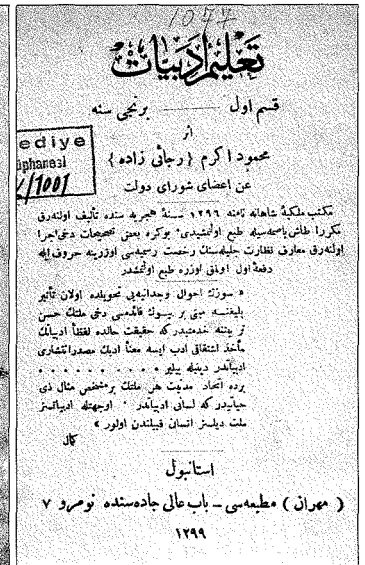 1077
تعلیم ادبیات
قسم اول —— برنجی سنه
از
محمود اكرم { رجائی زاده }
عن اعضای شورای دولت
ediye
üphanesi
/1001
مكتب ملكیۀ شاهانه نامنه ١٢٩٦ سنۀ هجریه سنده تألیف اولنه رق
مكررا طاش باصمه سیله طبع اولنمشیدی . بوكره بعض تصحیحات دخی اجرا
اولنه رق معارف نظارت جلیله سنك رخصت رسمیه سی اوزرینه حروف ایله
دفعۀ اول اولمق اوزره طبع اولنمشدر
« سوزك احوال وجدانیه یی تحویلده اولان تأثیر
بلیغنه مبنی بر بیوك فائده سی دخی ملتك حسن
تربیتنه خدمتیدر كه حقیقت حالده لفظاً ادبیاتك
مأخذ اشتقاقی ادب ایسه معناً ادبك مصدر انتشاری
ادبیاتدر دینیله بیلیر . . . . . . . . .
یرده اتحاد مدنیت هر ملتك بر مشخص مثال ذی
حیاتیدر كه لسانی ادبیاتدر . اوجهتله ادبیاتسز
ملت دیلسز انسان قبیلندن اولور »
كمال
استانبول
( مهران ) مطبعه سی ـ باب عالی جاده سنده نومرو ٧
١٢٩٩